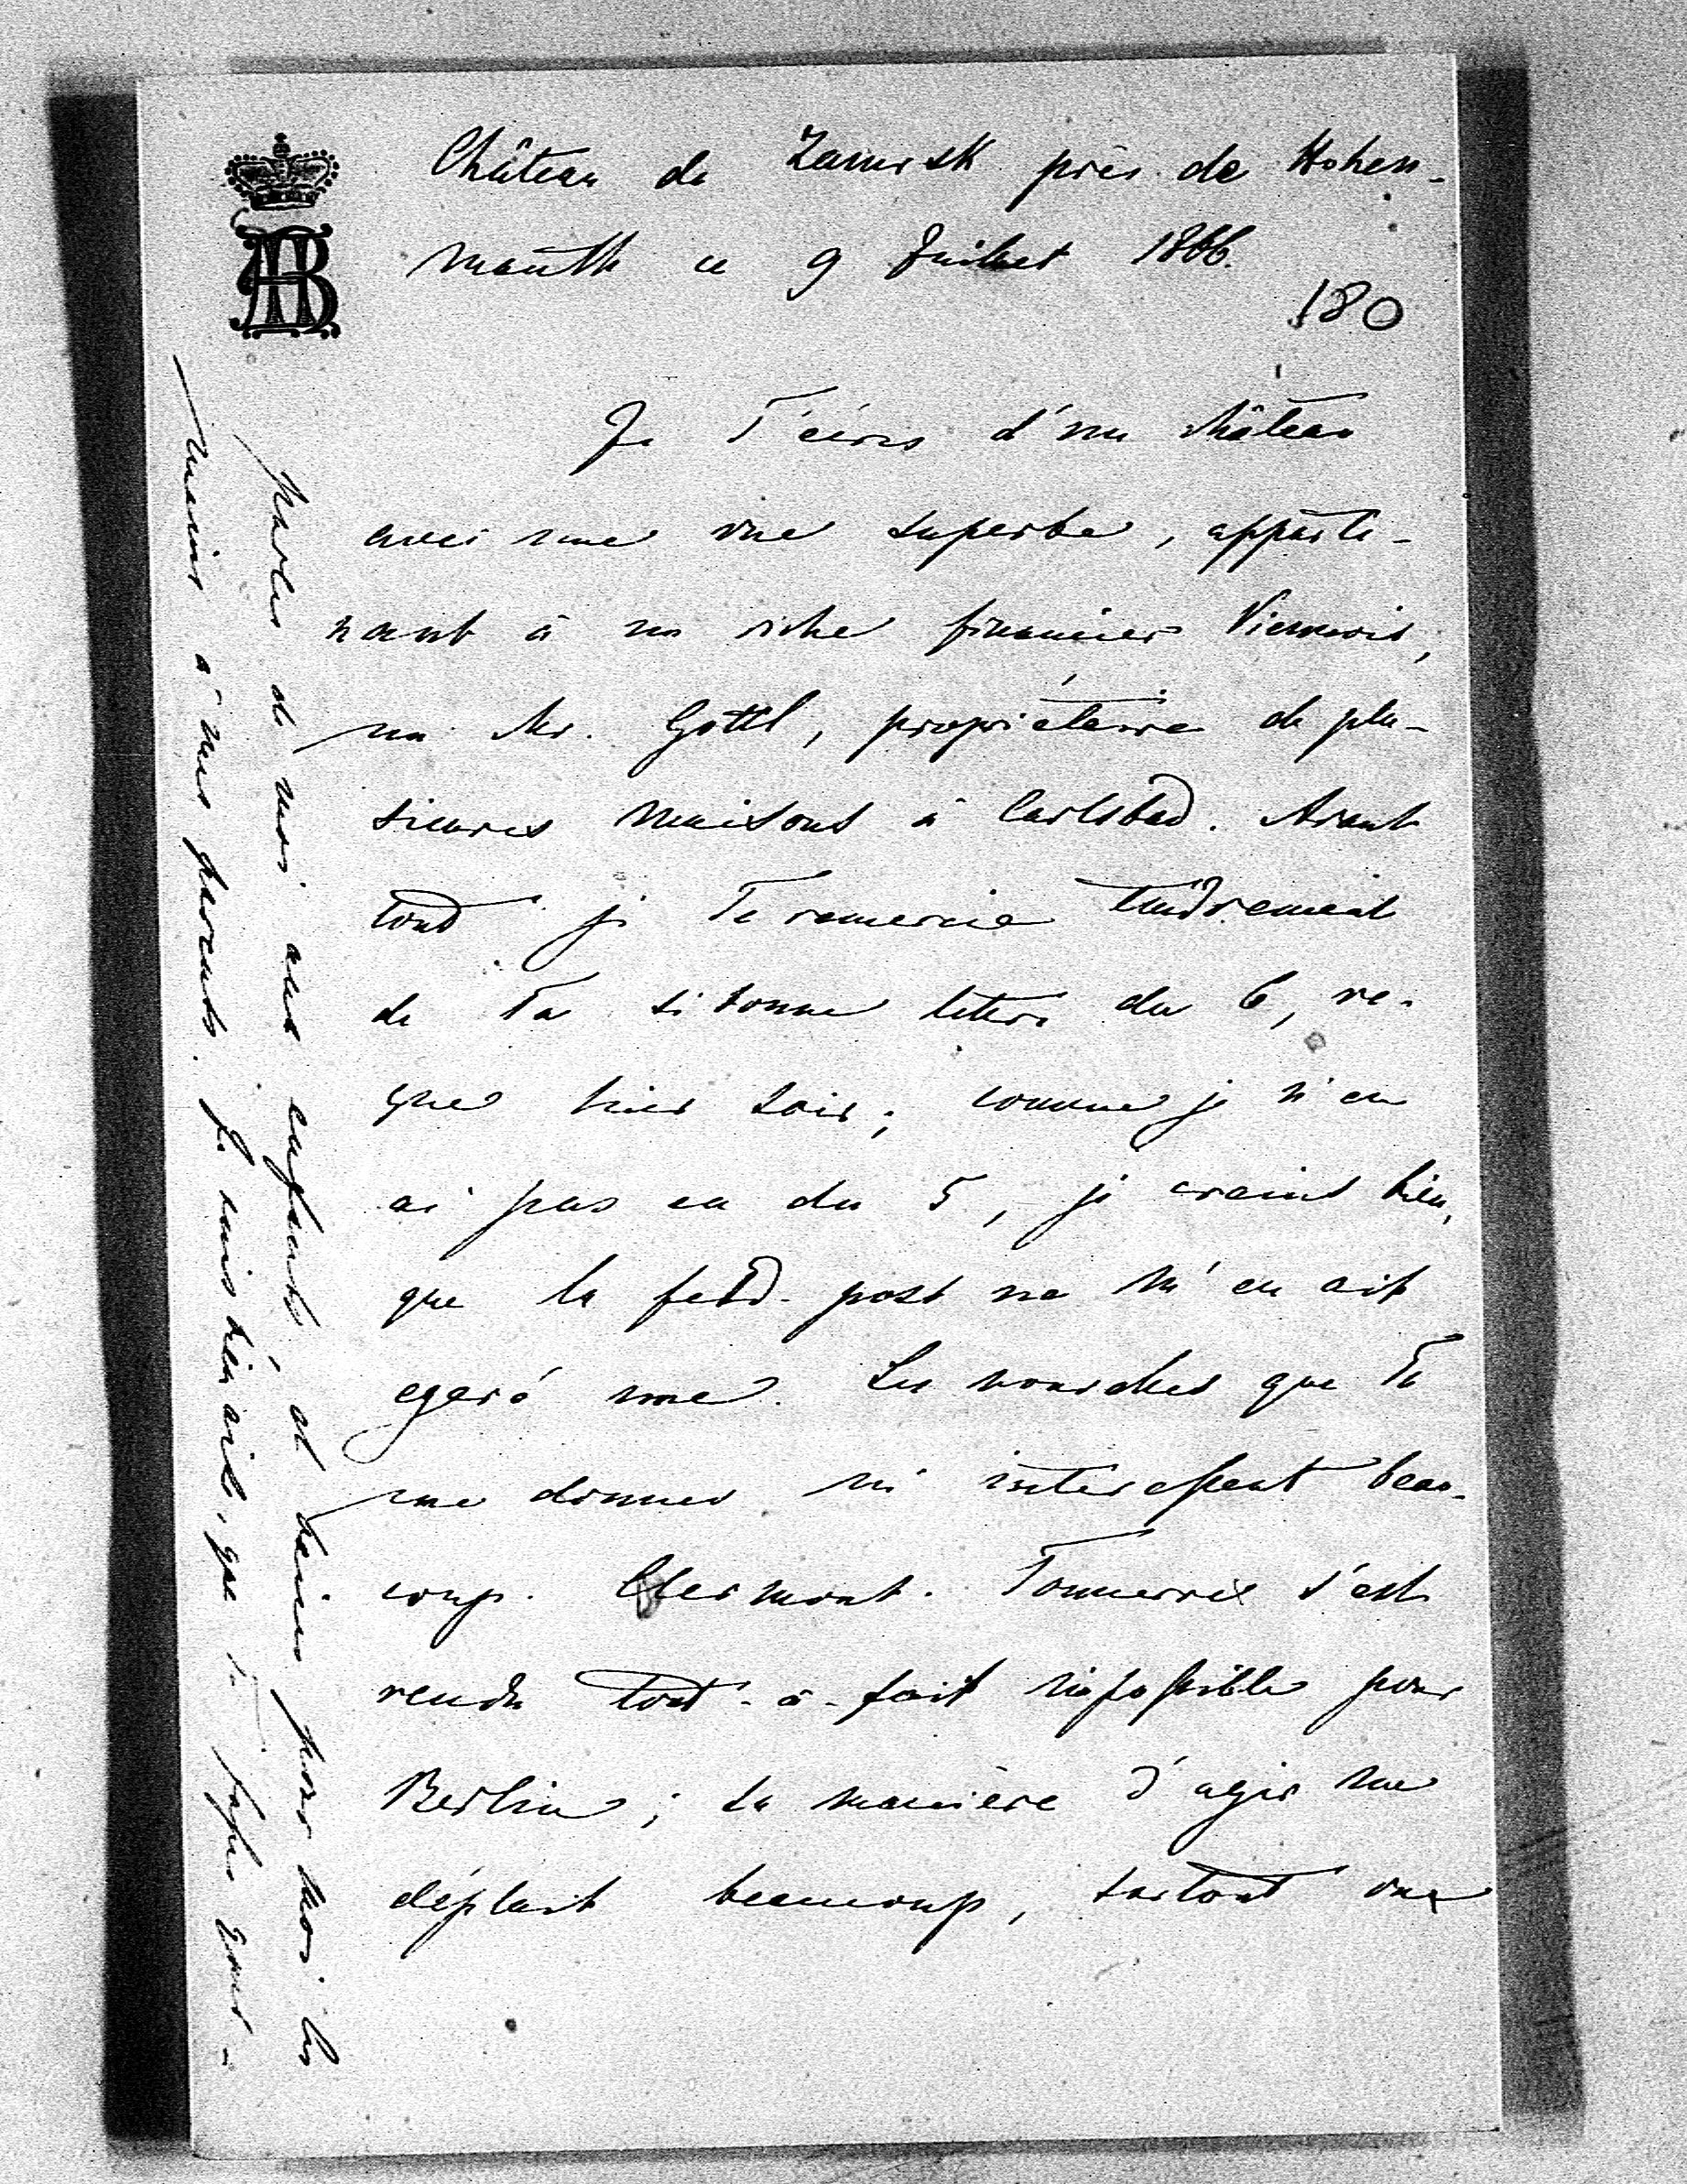 Château de Zamrsk près de Hohen-
mauth ce 9 Juillet 1866.
180
AB
Je T'écris d'un château
avec une vue superbe, apparte-
nant à un riche financier Viennois,
un Mr. Göttl, propriétaire de plu-
sieures maisons à Carlsbad. Avant
tout je Te remercie tendrement
de Ta si bonne lettre du 6, re-
çue hier soir; comme je n'en
ai pas eu du 5, je crains bien,
que la feld-post ne m'en ait
egaré une. Les nouvelles que Tu
me donnes m'interessent beau-
coup. Clermont-Tonnerre s'est
rendu tout-à-fait impossible pour
Berlin; sa manière d'agir me
déplait beaucoup, surtout vue
parles de moi aux enfants, et baises pour moi les
mains à mes parents. Je suis bien aise, que Tu